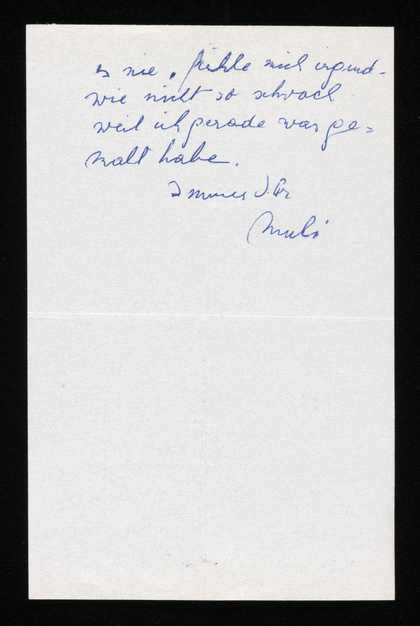 es nie, fühle mich irgend-
wie nicht so schwach
weil ich gerade was ge=
malt habe.
Immer Ihr